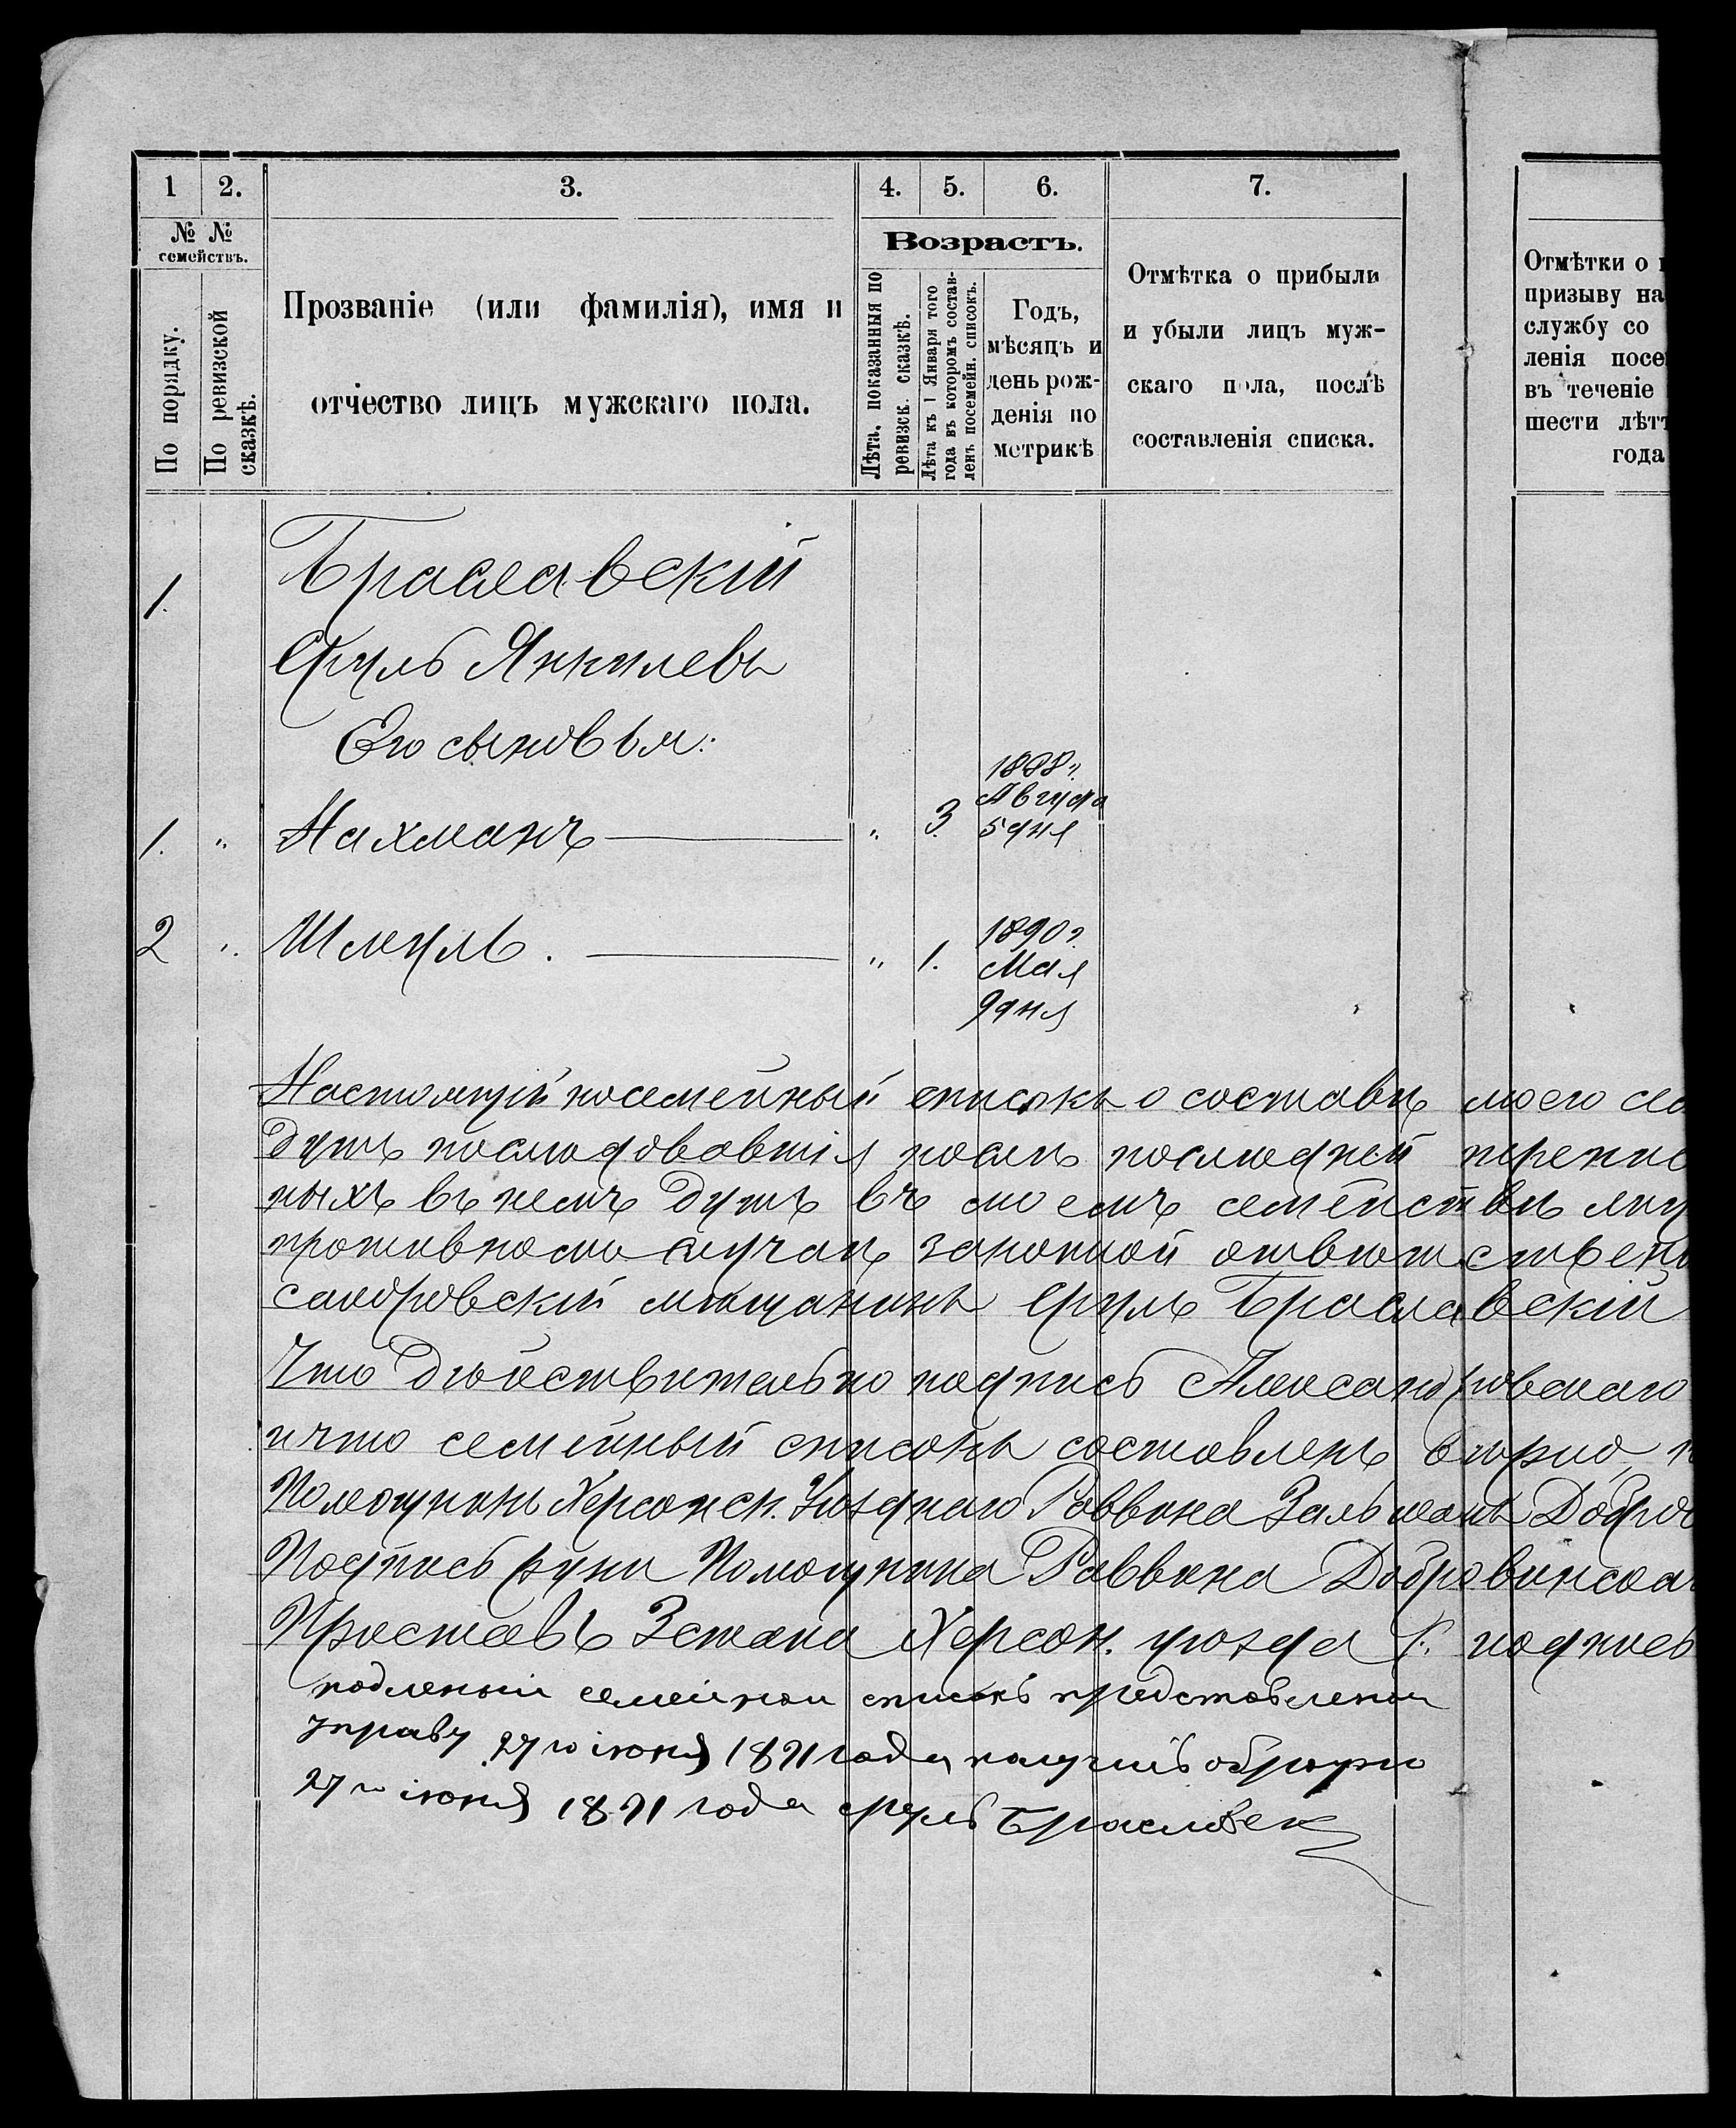 1 2. 3. 4. 5. 6. 7.
№ № семействъ.
По порядку.
По ревизской сказкѣ.
Прозваніе (или фамилія), имя и
отчество лицъ мужскаго пола.
Возрастъ.
Лѣта, показанныя по
ревизск. сказкѣ.
Лѣта къ 1 Января того
года въ которомъ состав-
ленъ посемейн. списокъ.
Годъ,
мѣсяцъ и
день рож-
денія по
метрикѣ
Отмѣтка о прибыли
и убыли лицъ муж-
скаго пола, послѣ
составленія списка.
Отмѣтки о
призыву на
службу со
ленія посе
въ теченіе
шести лѣтъ
года
1. Браславскій
Сруль Янкилевъ
Его сыновья:
1. „ Нахманъ — „ 3. 1888 г. Августа 5 дня
2 „ Шмуль. — „ 1. 1890 г. Мая 9 дня
Настоящій посемейный списокъ о составѣ моего се
душъ послѣдовавшія послѣ послѣдней перепис
ныхъ въ немъ душъ въ моемъ семействѣ
противномъ случаѣ законной отвѣтственн
сандровскій мѣщанинъ Сруль Браславскій
Что дѣйствительно подпись Александровскаго
и что семейный списокъ составленъ вѣрно,
Помощникъ Херсонск. Уѣзднаго Раввина Зальманъ Добро
Подпись руки Помощника Раввина Добровинска
Приставъ 3 стана Херсон. уѣзда подпись
подленый семейной списокъ представленои
управу 27 го іюня 1891 года получилъ обратно
27 го іюня 1891 года сруль Браславск